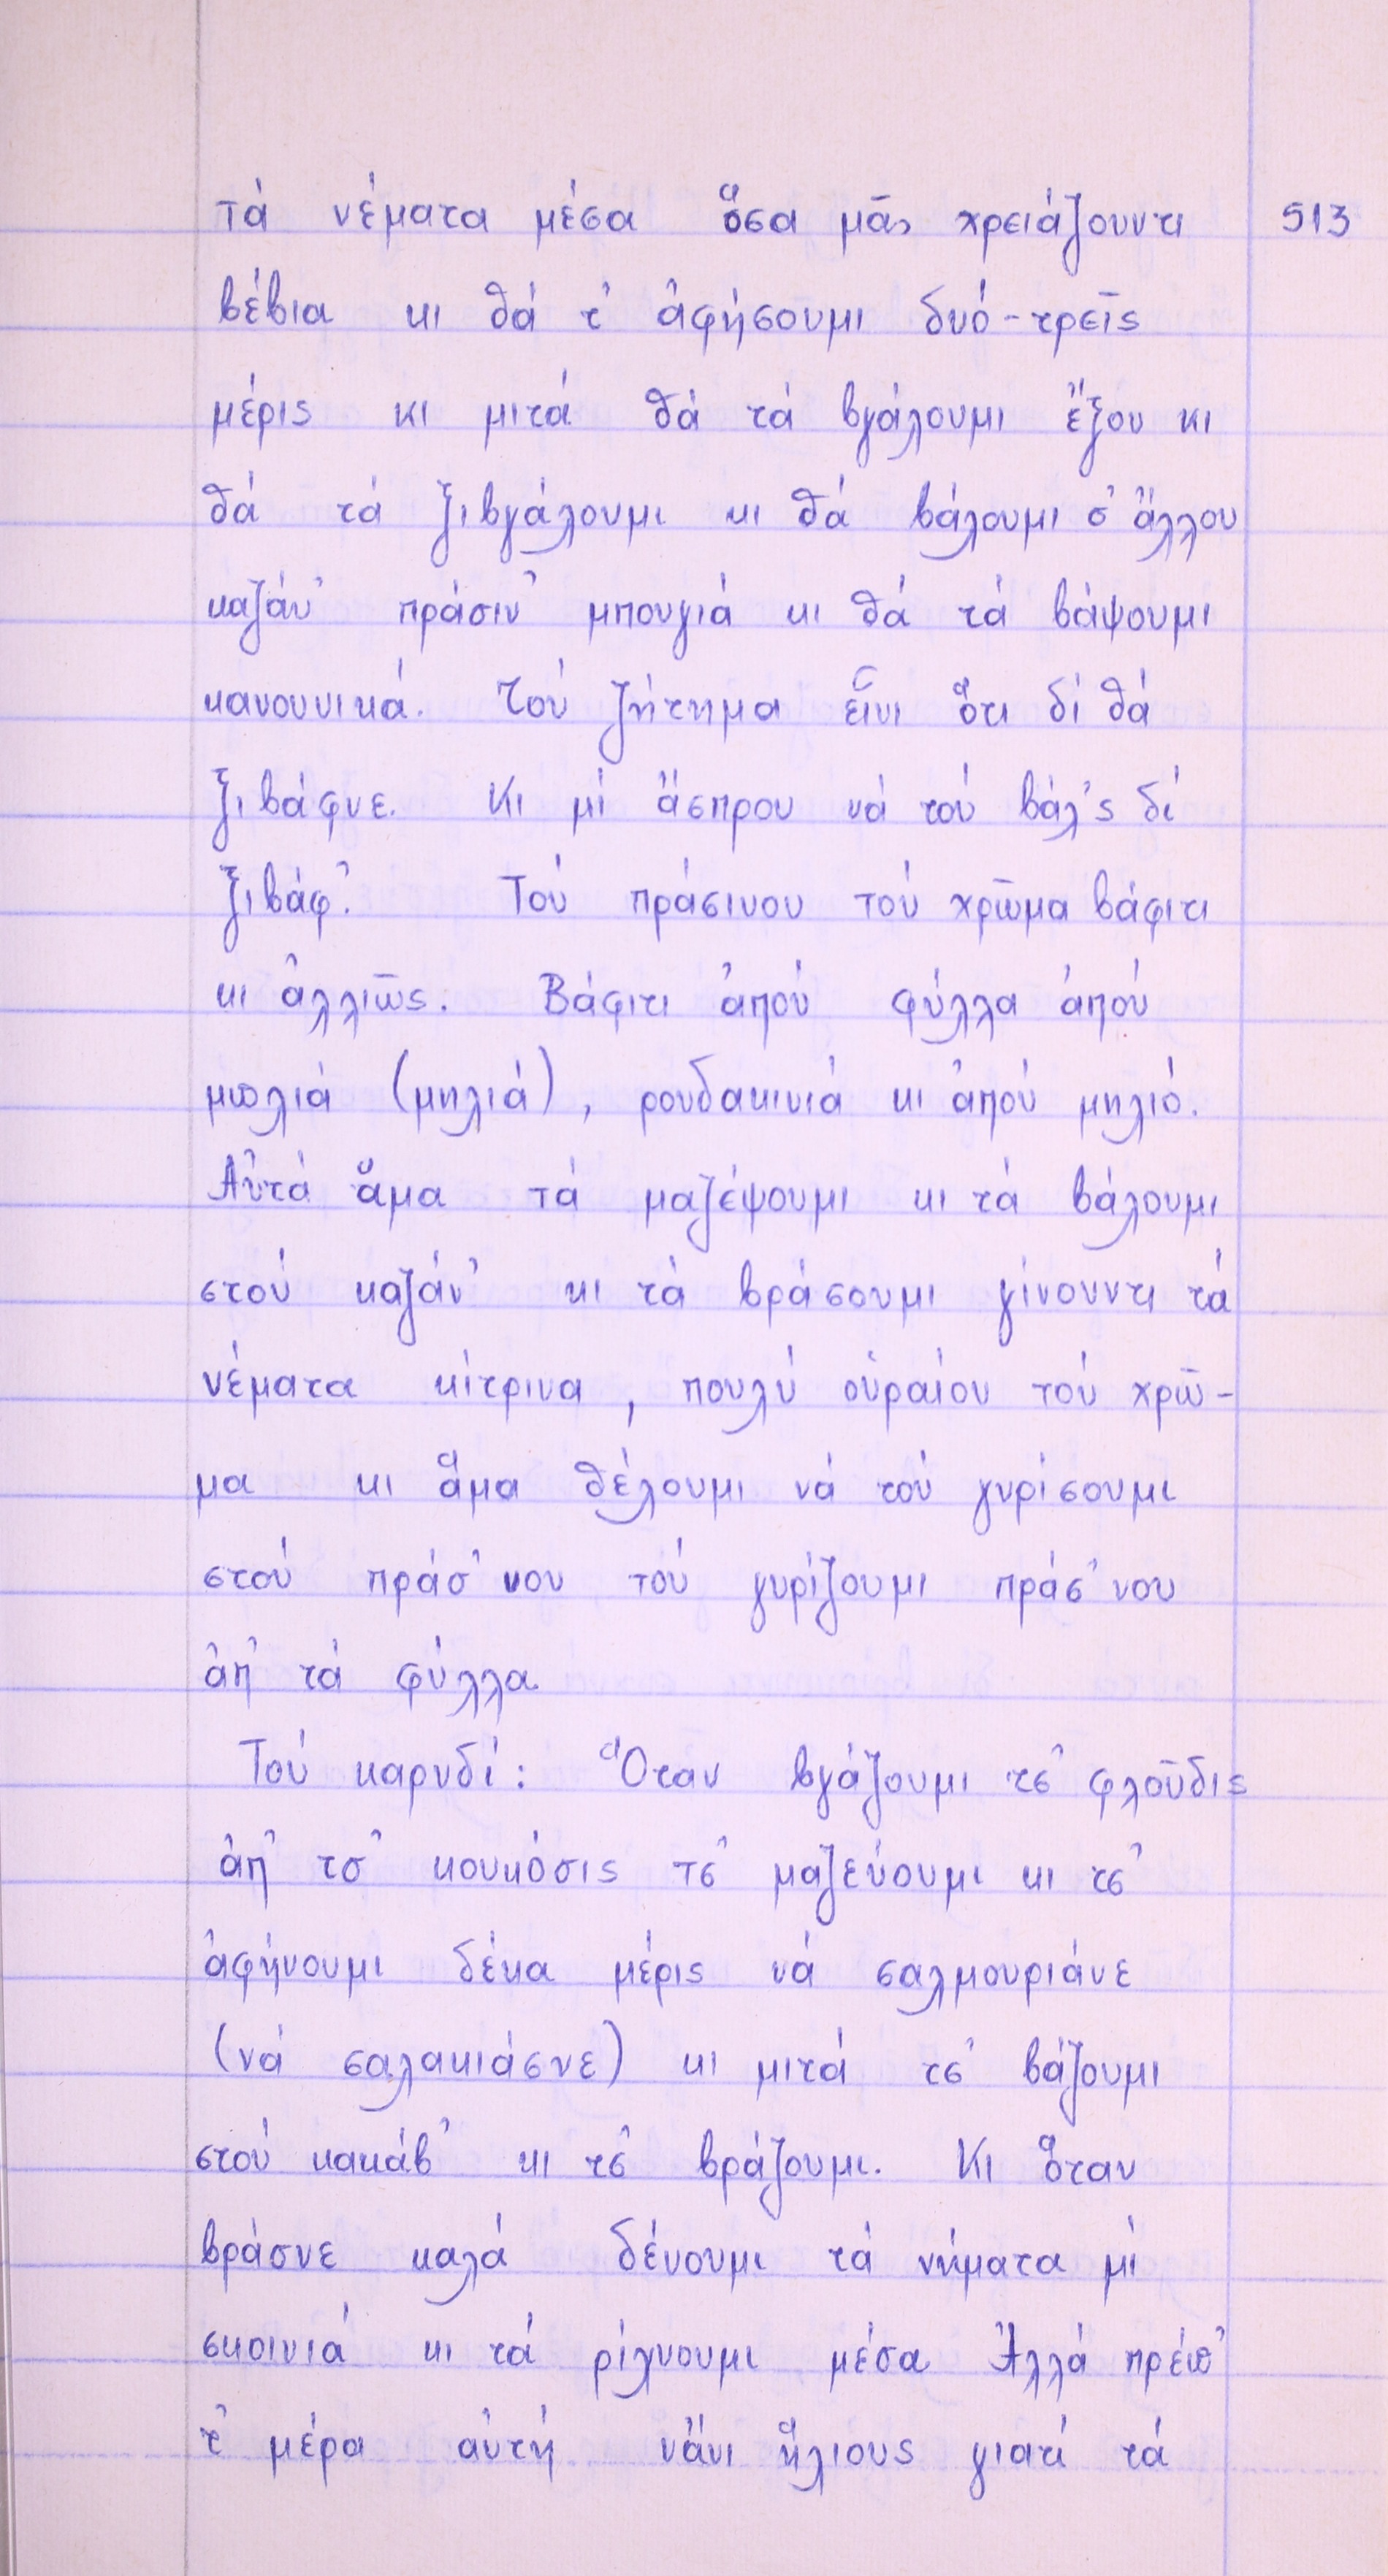 τά νέματα μέσα ὅσα μᾶς χρειάζουντι 513
βέβια κι θά τ' ἀφήσουμι δυό-τρεῖς
μέρις κι μιτά θά τά βγάλουμι ἔξου κι
θά τά ξιβγάλουμι κι θά βάλουμι σ' ἄλλου
καζάν' πράσιν' μπουγιά κι θά τά βάψουμι
κανουνικά. Τού ζήτημα εἶνι ὅτι δί θά
ξιβάφνε. Κι μί ἄσπρου νά τού βάλ'ς δί
ξιβάφ'. Τού πράσινου τού χρῶμα βάφιτι
κι ἀλλιῶς. Βάφιτι ἀπού φύλλα ἀπού
μπλιά (μηλιά), ρουδακινιά κι ἀπού μηλιό.
Αὐτά ἅμα τά μαζέψουμι κι τά βάλουμι
στού καζάν' κι τά βράσουμι γίνουντι τά
νέματα κίτρινα, πουλύ οὑραίου τού χρῶ-
μα κι ἅμα θέλουμι νά τού γυρίσουμι
στού πράσ'νου τού γυρίζουμι πράσ'νου
ἀπ' τά φύλλα
Τού καρυδί: Ὅταν βγάζουμι τσ' φλοῦδις
ἀπ' τσ' κουκόσις τσ' μαζεύουμι κι τσ'
ἀφήνουμι δέκα μέρις νά σαλμουριάνε
(νά σαλακιάσνε) κι μιτά τσ' βάζουμι
στού κακάβ' κι τσ' βράζουμι. Κι ὅταν
βράσνε καλά δένουμι τά νήματα μί
σκοινιά κι τά ρίχνουμι μέσα Ἀλλά πρέπ'
τ' μέρα αὐτή νἄνι ἥλιους γιατί τά